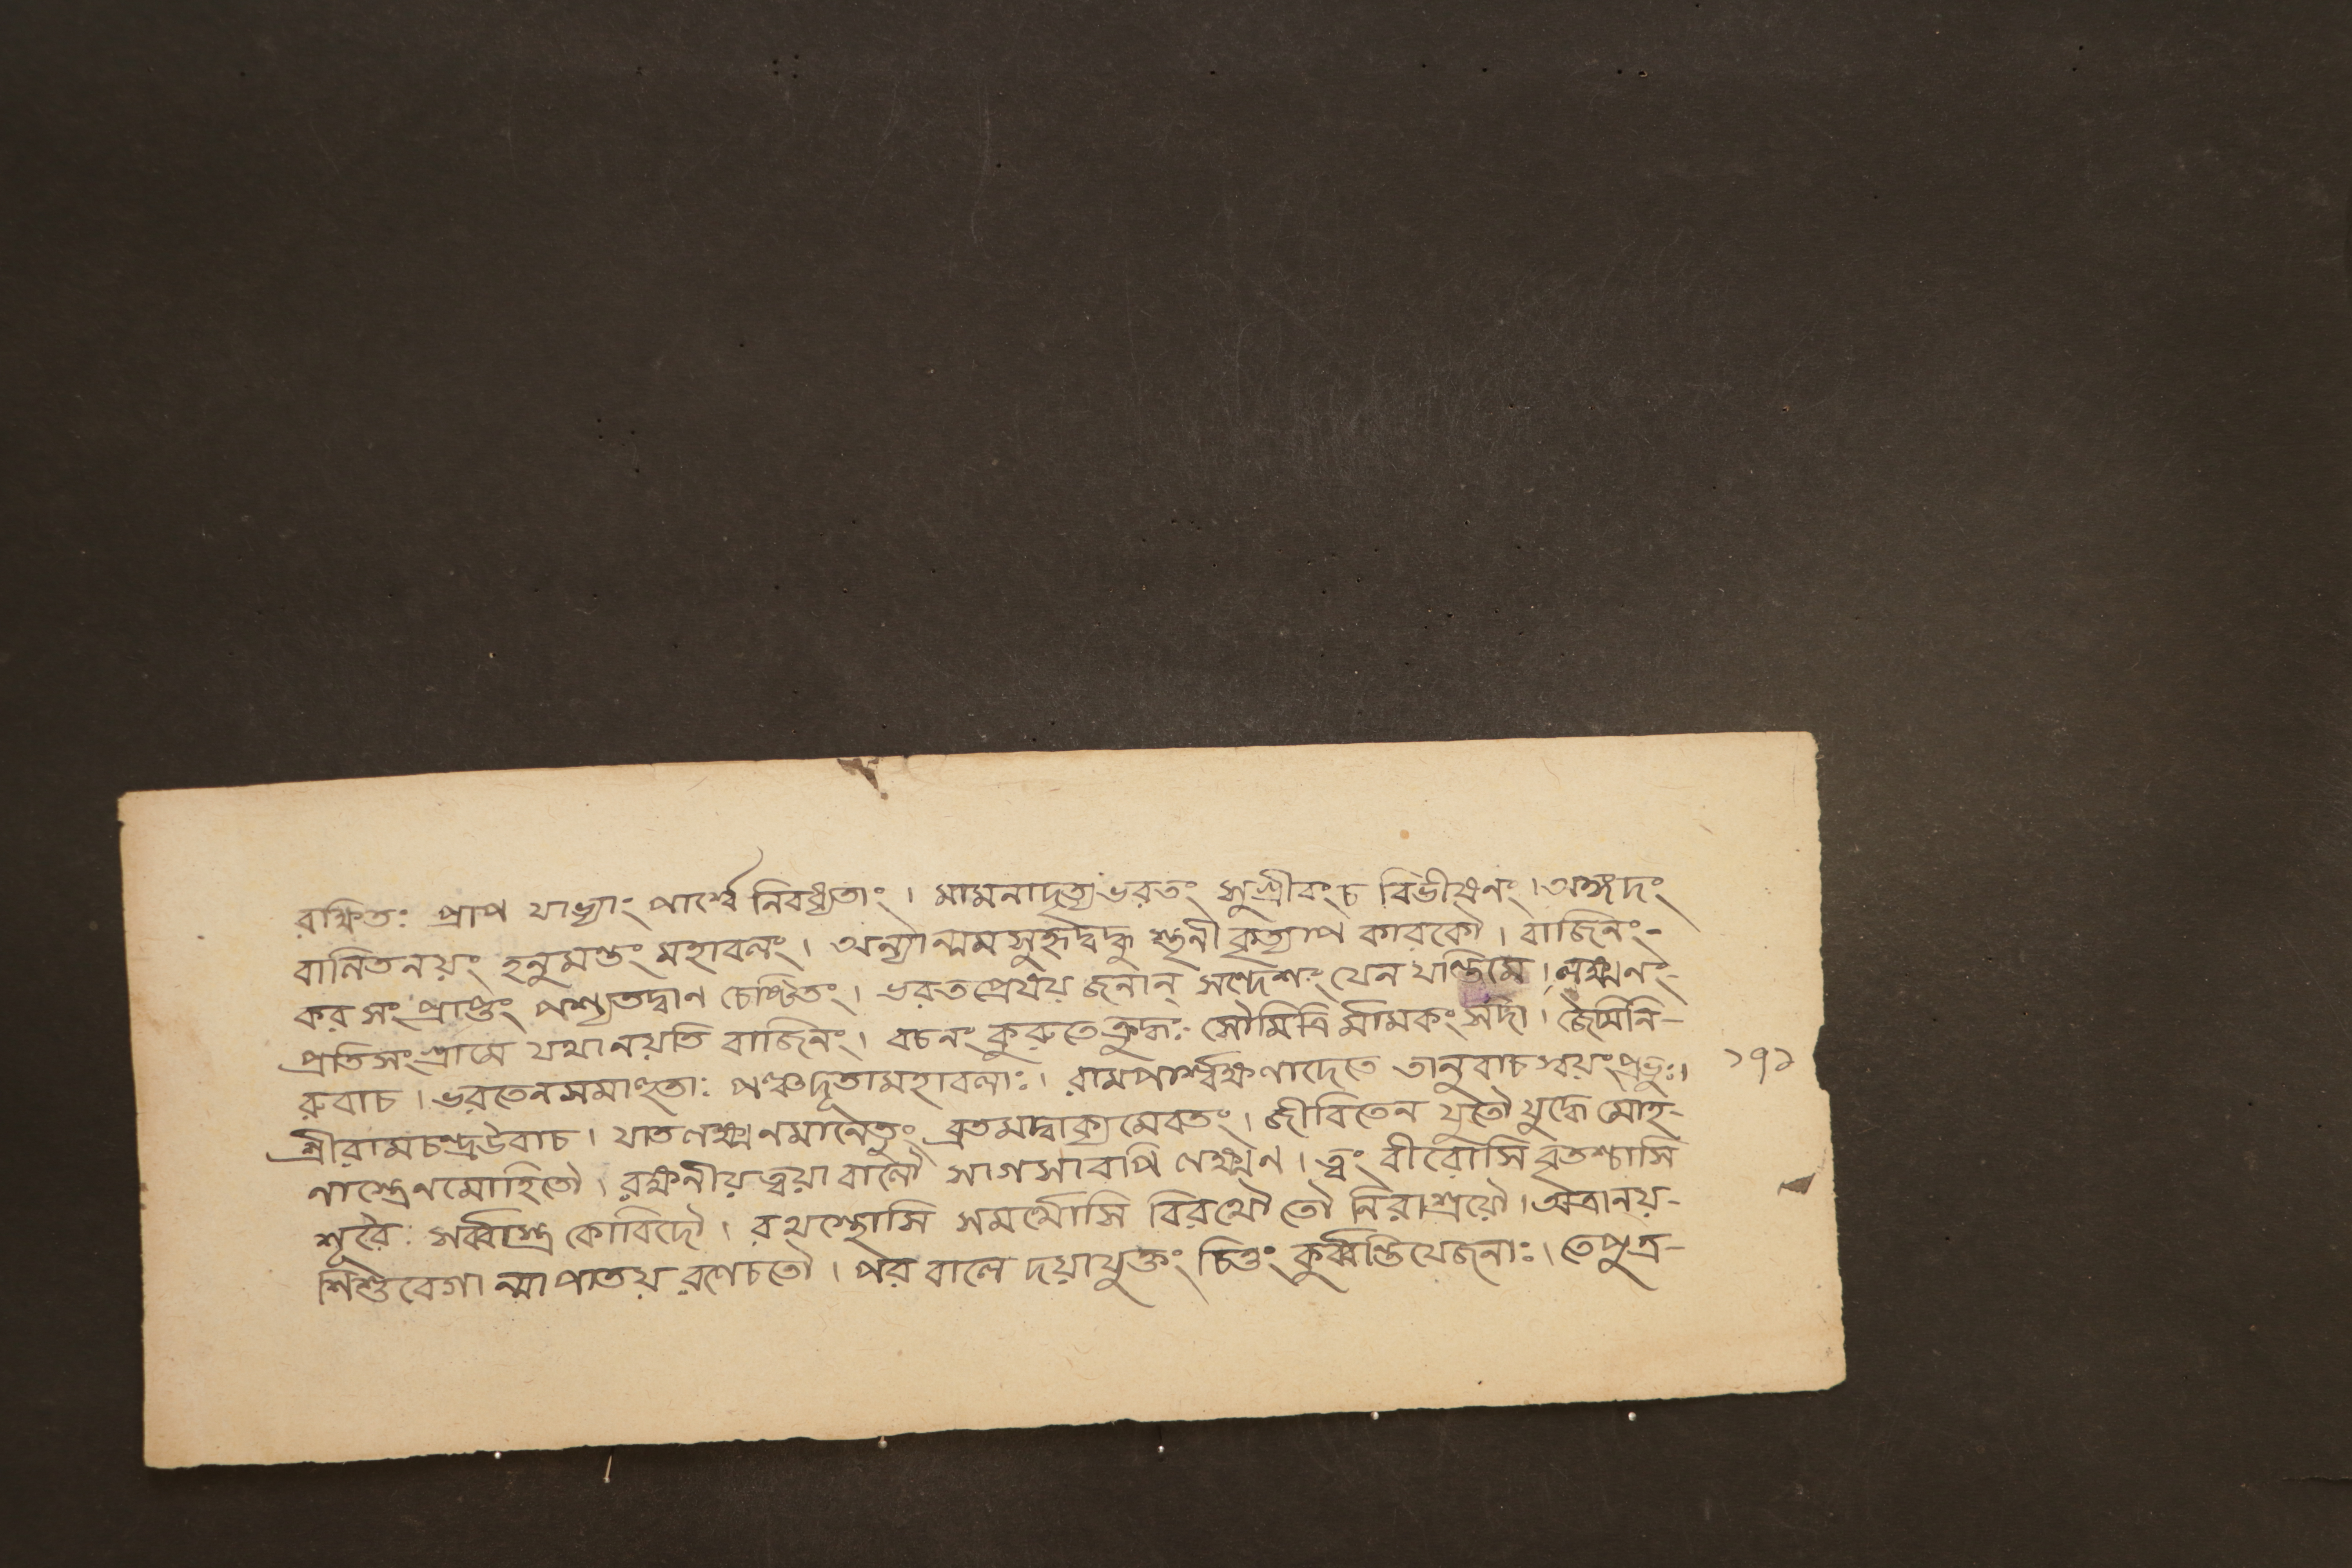 রক্ষিতঃ প্রাপ যাভ্যাং পার্শ্বে নিবধ্যতাং । মামনাদৃত্য ভরতং সুগ্রীবংচ বিভীষনং । অঙ্গদং
বালিতনয়ং হনুমন্তং মহাবলং । অন্যান্মমসুহৃদ্বন্ধু শৃনী কৃত্যাপ কারকৌ । বাজিনং-
কর সং প্রাপ্তং পশ্যতদ্বাল চেষ্টিতং । ভরতপ্রেষয় জনান্ সন্দেশং যেন যান্তিমে । লক্ষ্মণং-
প্রতিসংগ্রামে যথানয়তি বাজিনং । বচনং কুরুতে ক্রুদ্ধঃ সৌমিত্রি র্মামকং সদা । জৈমিনি-
রুবাচ । ভরতেনসমাহুতাঃ পঞ্চদূতামহাবলাঃ । রামপার্শ্বক্ষণাদেতে তানুবাচ স্বয়ং প্রভুঃ । ১৭১
শ্রীরামচন্দ্রউবাচ । যাতলক্ষ্মণমানেতুং ব্রূতমদ্বাক্যমেবতং । জীবিতেন যুতৌ যুদ্ধে মোহ-
নাস্ত্রেনমোহিতৌ । রক্ষনীয় ত্বয়া বালৌ সাগসাবপি লক্ষ্মণ । ত্বং বীরোসি বৃতশ্চাসি
শূরৈঃ সর্ব্বাস্ত্র কোবিদৌ । রথস্থোসি সমর্থোসি বিরথৌ তৌ নিরাশ্রয়ৌ । অত্রানয়-
শিশুবেগা ন্মা পাতয় রণেচতৌ । পর বালে দয়াযুক্তং চিত্তং কুর্ব্বন্তিযেজনাঃ । তেপুত্র-